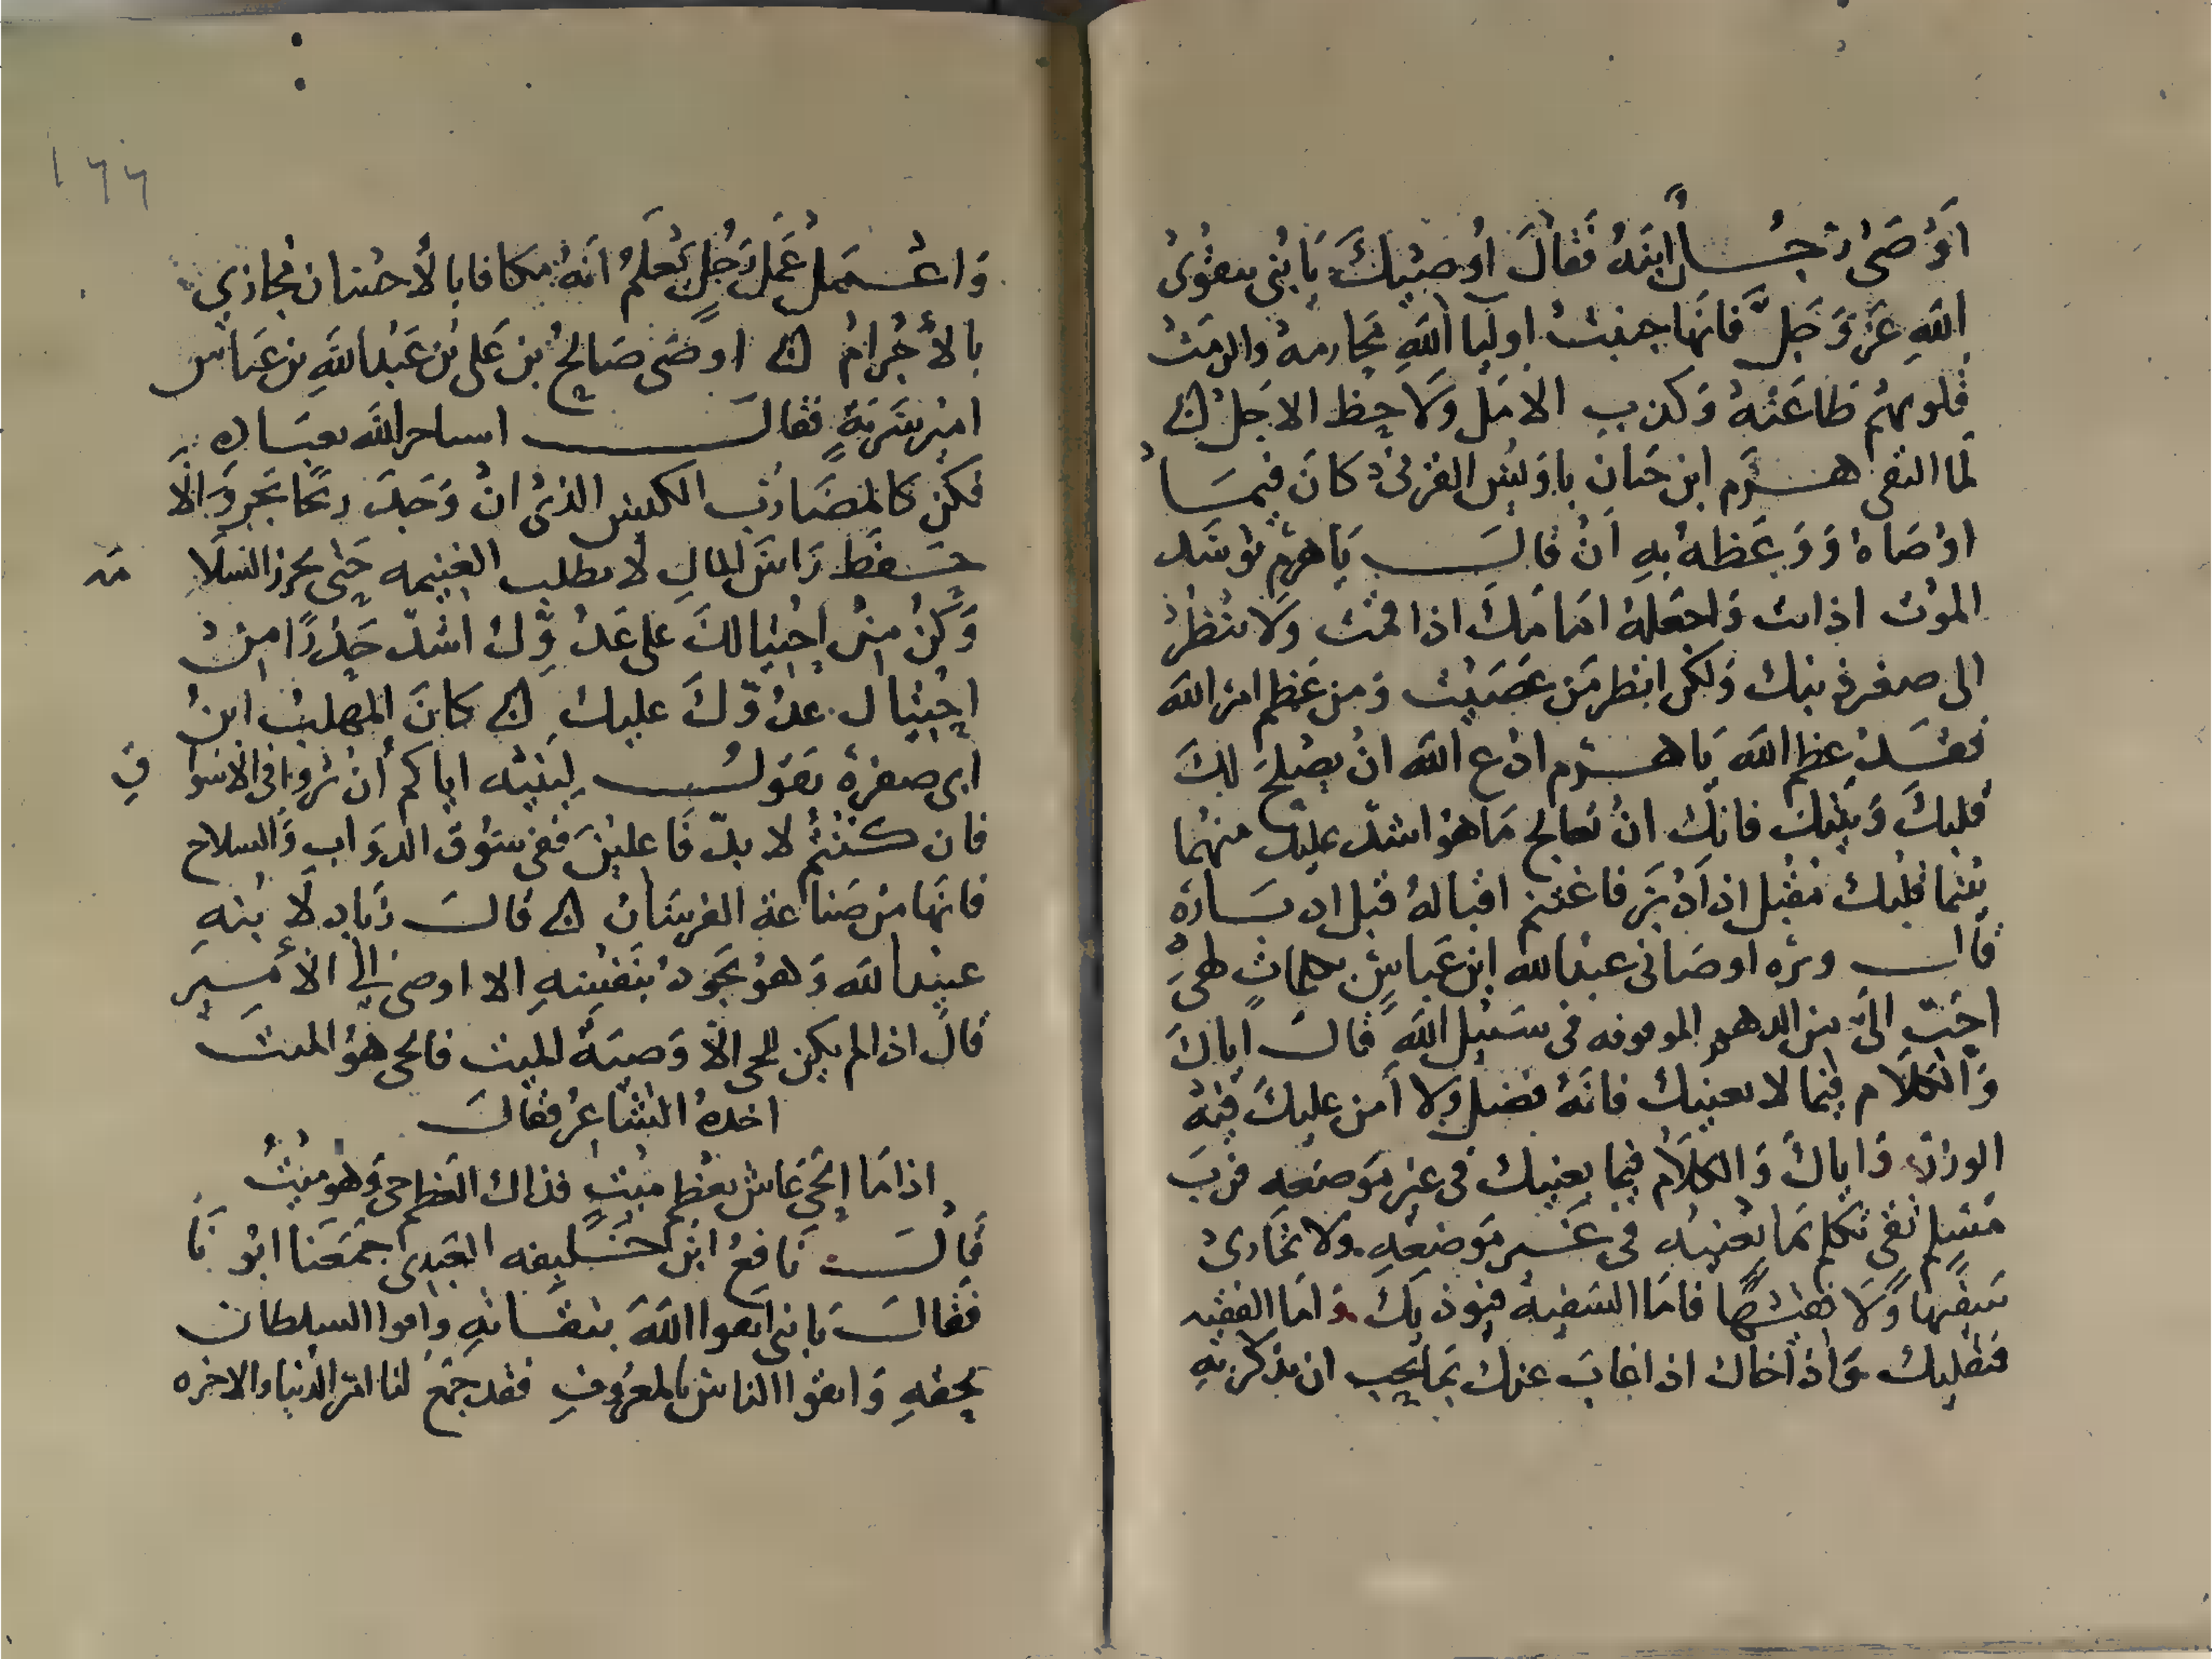 اَوْصَىٰ رَجُــلٌ ابنَهُ فَقَالَ اُوصيْكَ يَا بُنى بتقوىٰ
اللهِ عَزَّ وَجَلَّ فانَّها جنبت اولياَ اللهِ محارمهُ والزمَتْ
قلوبهُم طَاعَتهُ وَكذبِ الامَل وَلاحظ الاجَل ۞
لمَّا التقى هــرَم ابن حَيان باوَيْس القرنى كانَ فيمَــا
اوْصَاهُ وَوَعَظهُ بهِ اَنْ قالــَ يَا هَرم توسَّد
الموْت اذا نمت وَاجعَلهُ امَامَكَ اذا قمت وَلا تنظُرْ
الى صغر ذنبك وَلكن انظر مَن عَصَيْت وَمن عَظم امرَ الله
فقَــدْ عظم الله يَا هــرَم ادْع الله انْ يصْلحَ لكَ
قلبكَ وَنيّتكَ فانكْ انْ تعالج مَا هوَ اشدّ عليكَ منهُما
بينما قلبُك مُقبل اذ اَدْبَرَ فاغتنم اقبالهُ قبل ادبــارَه
قالــ وبره اوصَانى عَبْد الله ابن عَباسٍ بكلماتٍ لهىَ
احَبّ الىَّ من الدهم الموقوفه فى سَبيْل اللهِ قالــَ اياكَ
وَالكلَام فيما لا يعنيك فانَّهُ فضل وَلا آمن عليكَ فيْهِ
الوزرَ وَاياكَ وَالكلَامْ فيما يعنيك فى غير مَوضعه فربَ
مُسْلم تقى تكلم بمَا يعْنيْه فى غَــير مَوضعِهِ وَلا تمَارىْ
سَفيهًا وَلَا فقيْــهًا فامَّا السَفيْهُ فيؤذيكَ وَامَّا الفقيه
فيقليكْ وَاذكر اخاك اذا غابَ عنكَ بمَا تحبِ ان يذكركَ بهِ
١٦٦
وَاعْــمَلْ عَمَل رَجُلٍ يَعلَمُ اَنهُ مكافا بالأحسان مُجازي
بالأجْرامْ ۞ اوْصَى صَالحُ بْن عَلى بْن عَبْد اللهِ بن عَباس
اميْر سَريَّةٍ فقالــَ انت تاجر الله بعبَــاده
فكُن كالمضَاربِ الكيس الذىْ انْ وَجَدَ ربحًا تجر وَالَّا
حَــفظ رَاسَ المالِ لا تطلب الغنيمه حَتى تحرز السَلَا مَه
وَكُنْ مِنْ احْتيالكَ على عَدُوِّكَ اشدّ حَذرًا مِنْ
احْتيَال عَدُوِّكَ عليكَ ۞ كانَ المهلبُ ابنُ
ابى صفرةْ يقَولــُ لِبَنيْه اياكم أن تُروا فى الاسْوا قِ
فان كــنْتُمْ لا بدّ فَاعليْنَ ففى سُوقَ الدوَابِ وَالسلاح
فانَّها مْن صَناعة الفرسَان ۞ قالــَ زيَاد لَابْنهِ
عبيْد اللهَ وَهوْ يَجودُ بنَفْسهِ الا اوصى الى الأَمــيْر
قالَ اذا لم يكن للحى الَّا وَصيَّةُ الميت فالحى هوُ الميتــ
اخذهُ الشاعِرُ فقالــَ
اذا مَا الحَى عَاشَ بعَظمِ ميتٍ فذاك العَظم حَى وَهوَ ميْتُ
قالــَ نَافعُ ابْن خَــليفه العَبدى جَمَعَنا ابُو نَا
فقالــَ يا بنى اتقوا اللهَ بتقــاتهِ واتقوا السلطان
بحقهِ وَاتقوا الناس بالمعْرُوفِ فقد جَمَعَ لنا امْر الدُنيا والاخره